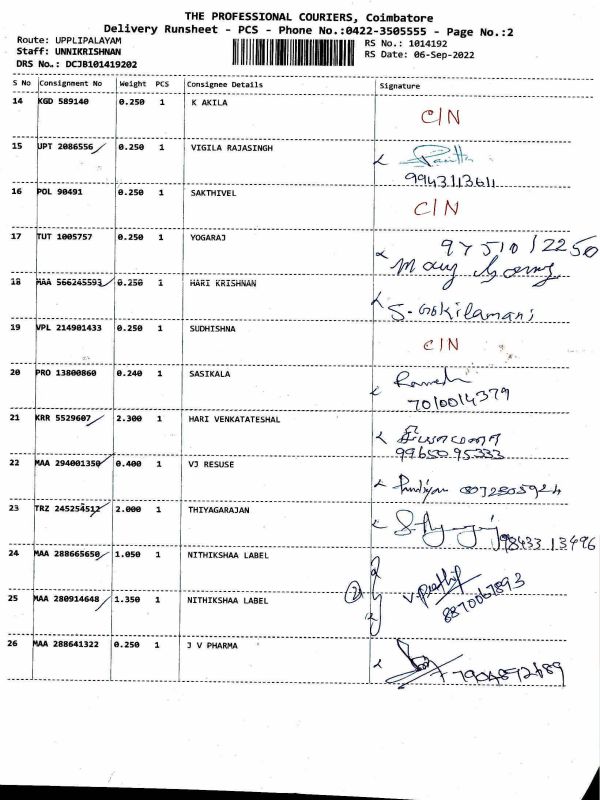 THE PROFESSIONAL COURIERS, Coimbatore
Delivery Runsheet - PCS - Phone No.:0422-3505555 - Page No.:2
Route: UPPLIPALAYAM
RS No.: 1014192
Staff: UNNIKRISHNAN
RS Date: 06-Sep-2022
DRS No.: DCJB101419202
S No Consignment No Weight PCS Consignee Details Signature
14 KGD 589140 0.250 1 K AKILA
C/N
15 UPT 2086556 0.250 1 VIGILA RAJASINGH
9943113611
16 POL 90491 0.250 1 SAKTHIVEL
C/N
17 TUT 1005757 0.250 1 YOGARAJ
9751012250
18 MAA 566245593 0.250 1 HARI KRISHNAN
S. Gokilamani
19 VPL 214901433 0.250 1 SUDHISHNA
C/N
20 PRO 13800860 0.240 1 SASIKALA
Ramesh
7010014379
21 KRR 5529607 2.300 1 HARI VENKATATESHAL
99650 95333
22 MAA 294001350 0.400 1 VJ RESUSE
23 TRZ 245254512 2.000 1 THIYAGARAJAN
98433 13496
24 MAA 288665650 1.050 1 NITHIKSHAA LABEL
2
8870067893
25 MAA 280914648 1.350 1 NITHIKSHAA LABEL
26 MAA 288641322 0.250 1 J V PHARMA